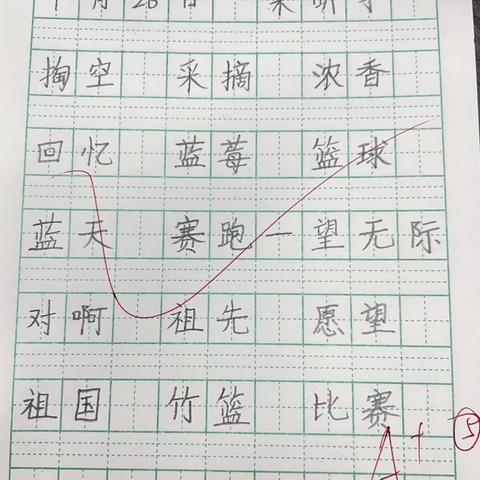 月28日
掏空 采摘 浓香
回忆 蓝莓 篮球
蓝天 赛跑 一望无际
对啊 祖先 愿望
祖国 竹篮 比赛
A+ 5